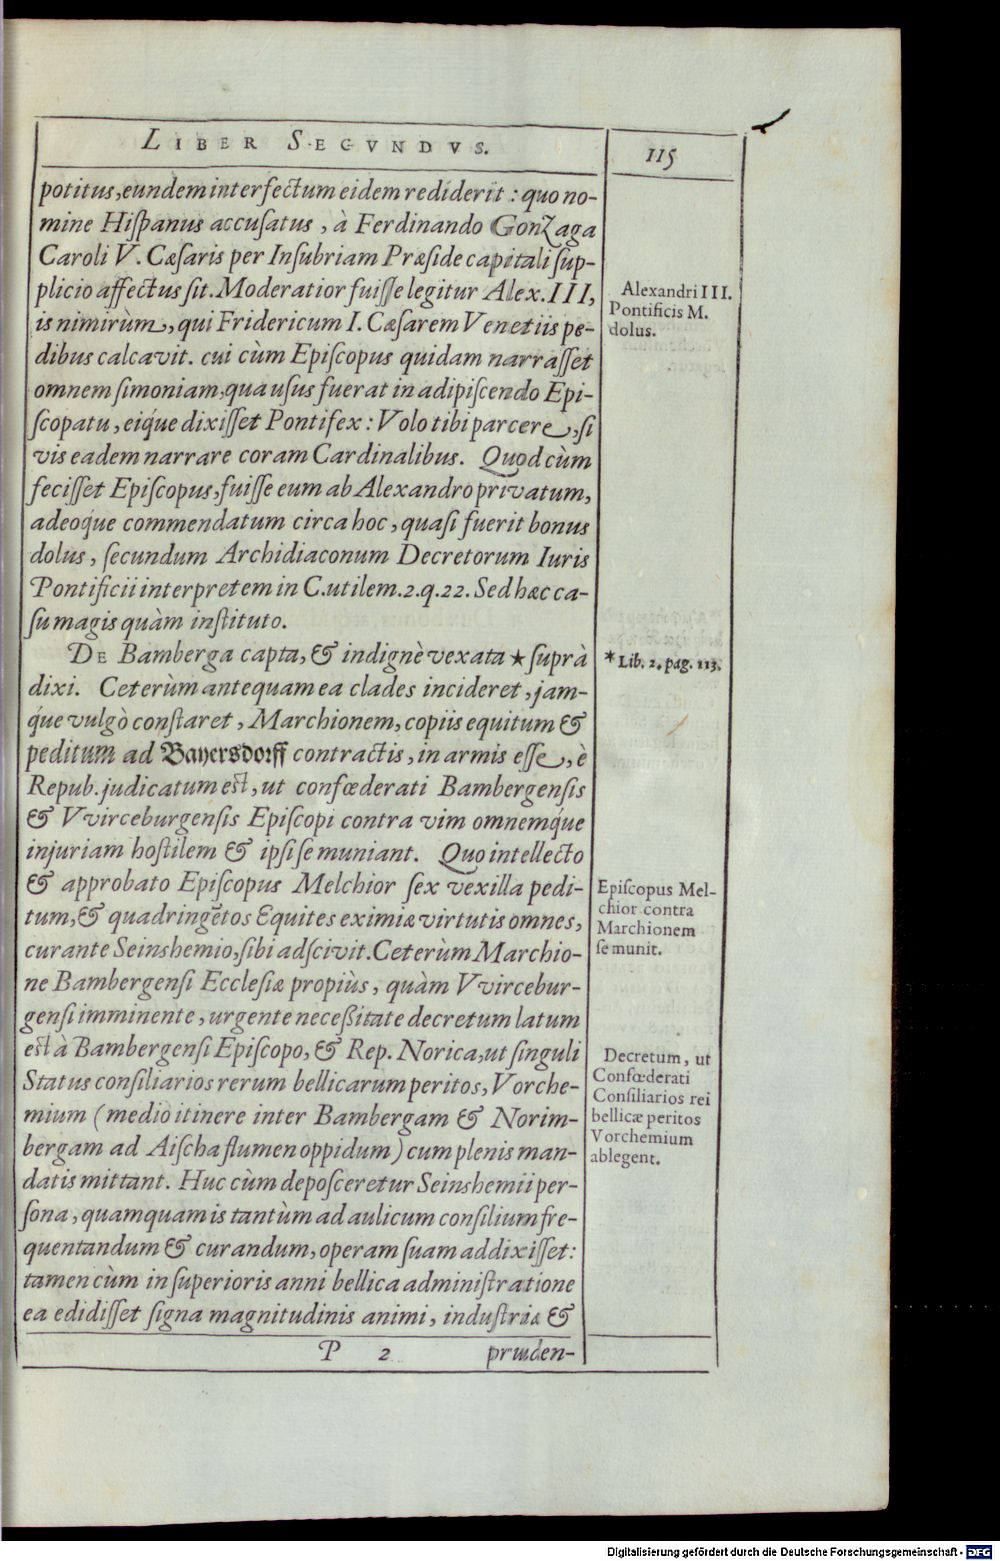 LIBER SEGVNDVS.
115
potitus, eundem interfectum eidem rediderit: quo no-
mine Hiſpanus accuſatus, à Ferdinando Gonzaga
Caroli V. Cæſaris per Inſubriam Præſide capitali ſup-
plicio affectus ſit. Moderatior fuiſſe legitur Alex. III,
is nimirùm, qui Fridericum I. Cæſarem Venetiis pe-
dibus calcavit. cui cùm Epiſcopus quidam narraſſet
omnem ſimoniam, qua uſus fuerat in adipiſcendo Epi-
ſcopatu, eiq́ue dixiſſet Pontifex: Volo tibi parcere, ſi
vis eadem narrare coram Cardinalibus. Quod cùm
feciſſet Epiſcopus, fuiſſe eum ab Alexandro privatum,
adeoq́ue commendatum circa hoc, quaſi fuerit bonus
dolus, ſecundum Archidiaconum Decretorum Iuris
Pontificii interpretem in C. utilem. 2. q. 22. Sed hæc ca-
ſu magis quàm inſtituto.
DE Bamberga capta, & indignè vexata ★ ſuprà
dixi. Ceterùm antequam ea clades incideret, jam-
q́ue vulgò conſtaret, Marchionem, copiis equitum &
peditum ad Bayersdorff contractis, in armis eſſe, è
Repub. judicatum eſt, ut confœderati Bambergenſis
& VVirceburgenſis Epiſcopi contra vim omnemq́ue
injuriam hoſtilem & ipſi ſe muniant. Quo intellecto
& approbato Epiſcopus Melchior ſex vexilla pedi-
tum, & quadringẽtos Equites eximiæ virtutis omnes,
curante Seinshemio, ſibi adſcivit. Ceterùm Marchio-
ne Bambergenſi Eccleſiæ propiùs, quàm VVircebur-
genſi imminente, urgente neceßitate decretum latum
eſt à Bambergenſi Epiſcopo, & Rep. Norica, ut ſinguli
Status conſiliarios rerum bellicarum peritos, Vorche-
mium (medio itinere inter Bambergam & Norim-
bergam ad Aiſcha flumen oppidum) cum plenis man-
datis mittant. Huc cùm depoſceretur Seinshemii per-
ſona, quamquam is tantùm ad aulicum conſilium fre-
quentandum & curandum, operam ſuam addixiſſet:
tamen cùm in ſuperioris anni bellica adminiſtratione
ea edidiſſet ſigna magnitudinis animi, induſtriæ &
P 2 pruden-
Alexandri III.
Pontificis M.
dolus.
* Lib. 2. pag. 113.
Epiſcopus Mel-
chior contra
Marchionem
ſe munit.
Decretum, ut
Confœderati
Conſiliarios rei
bellicæ peritos
Vorchemium
ablegent.
Digitalisierung gefördert durch die Deutsche Forschungsgemeinschaft - DFG